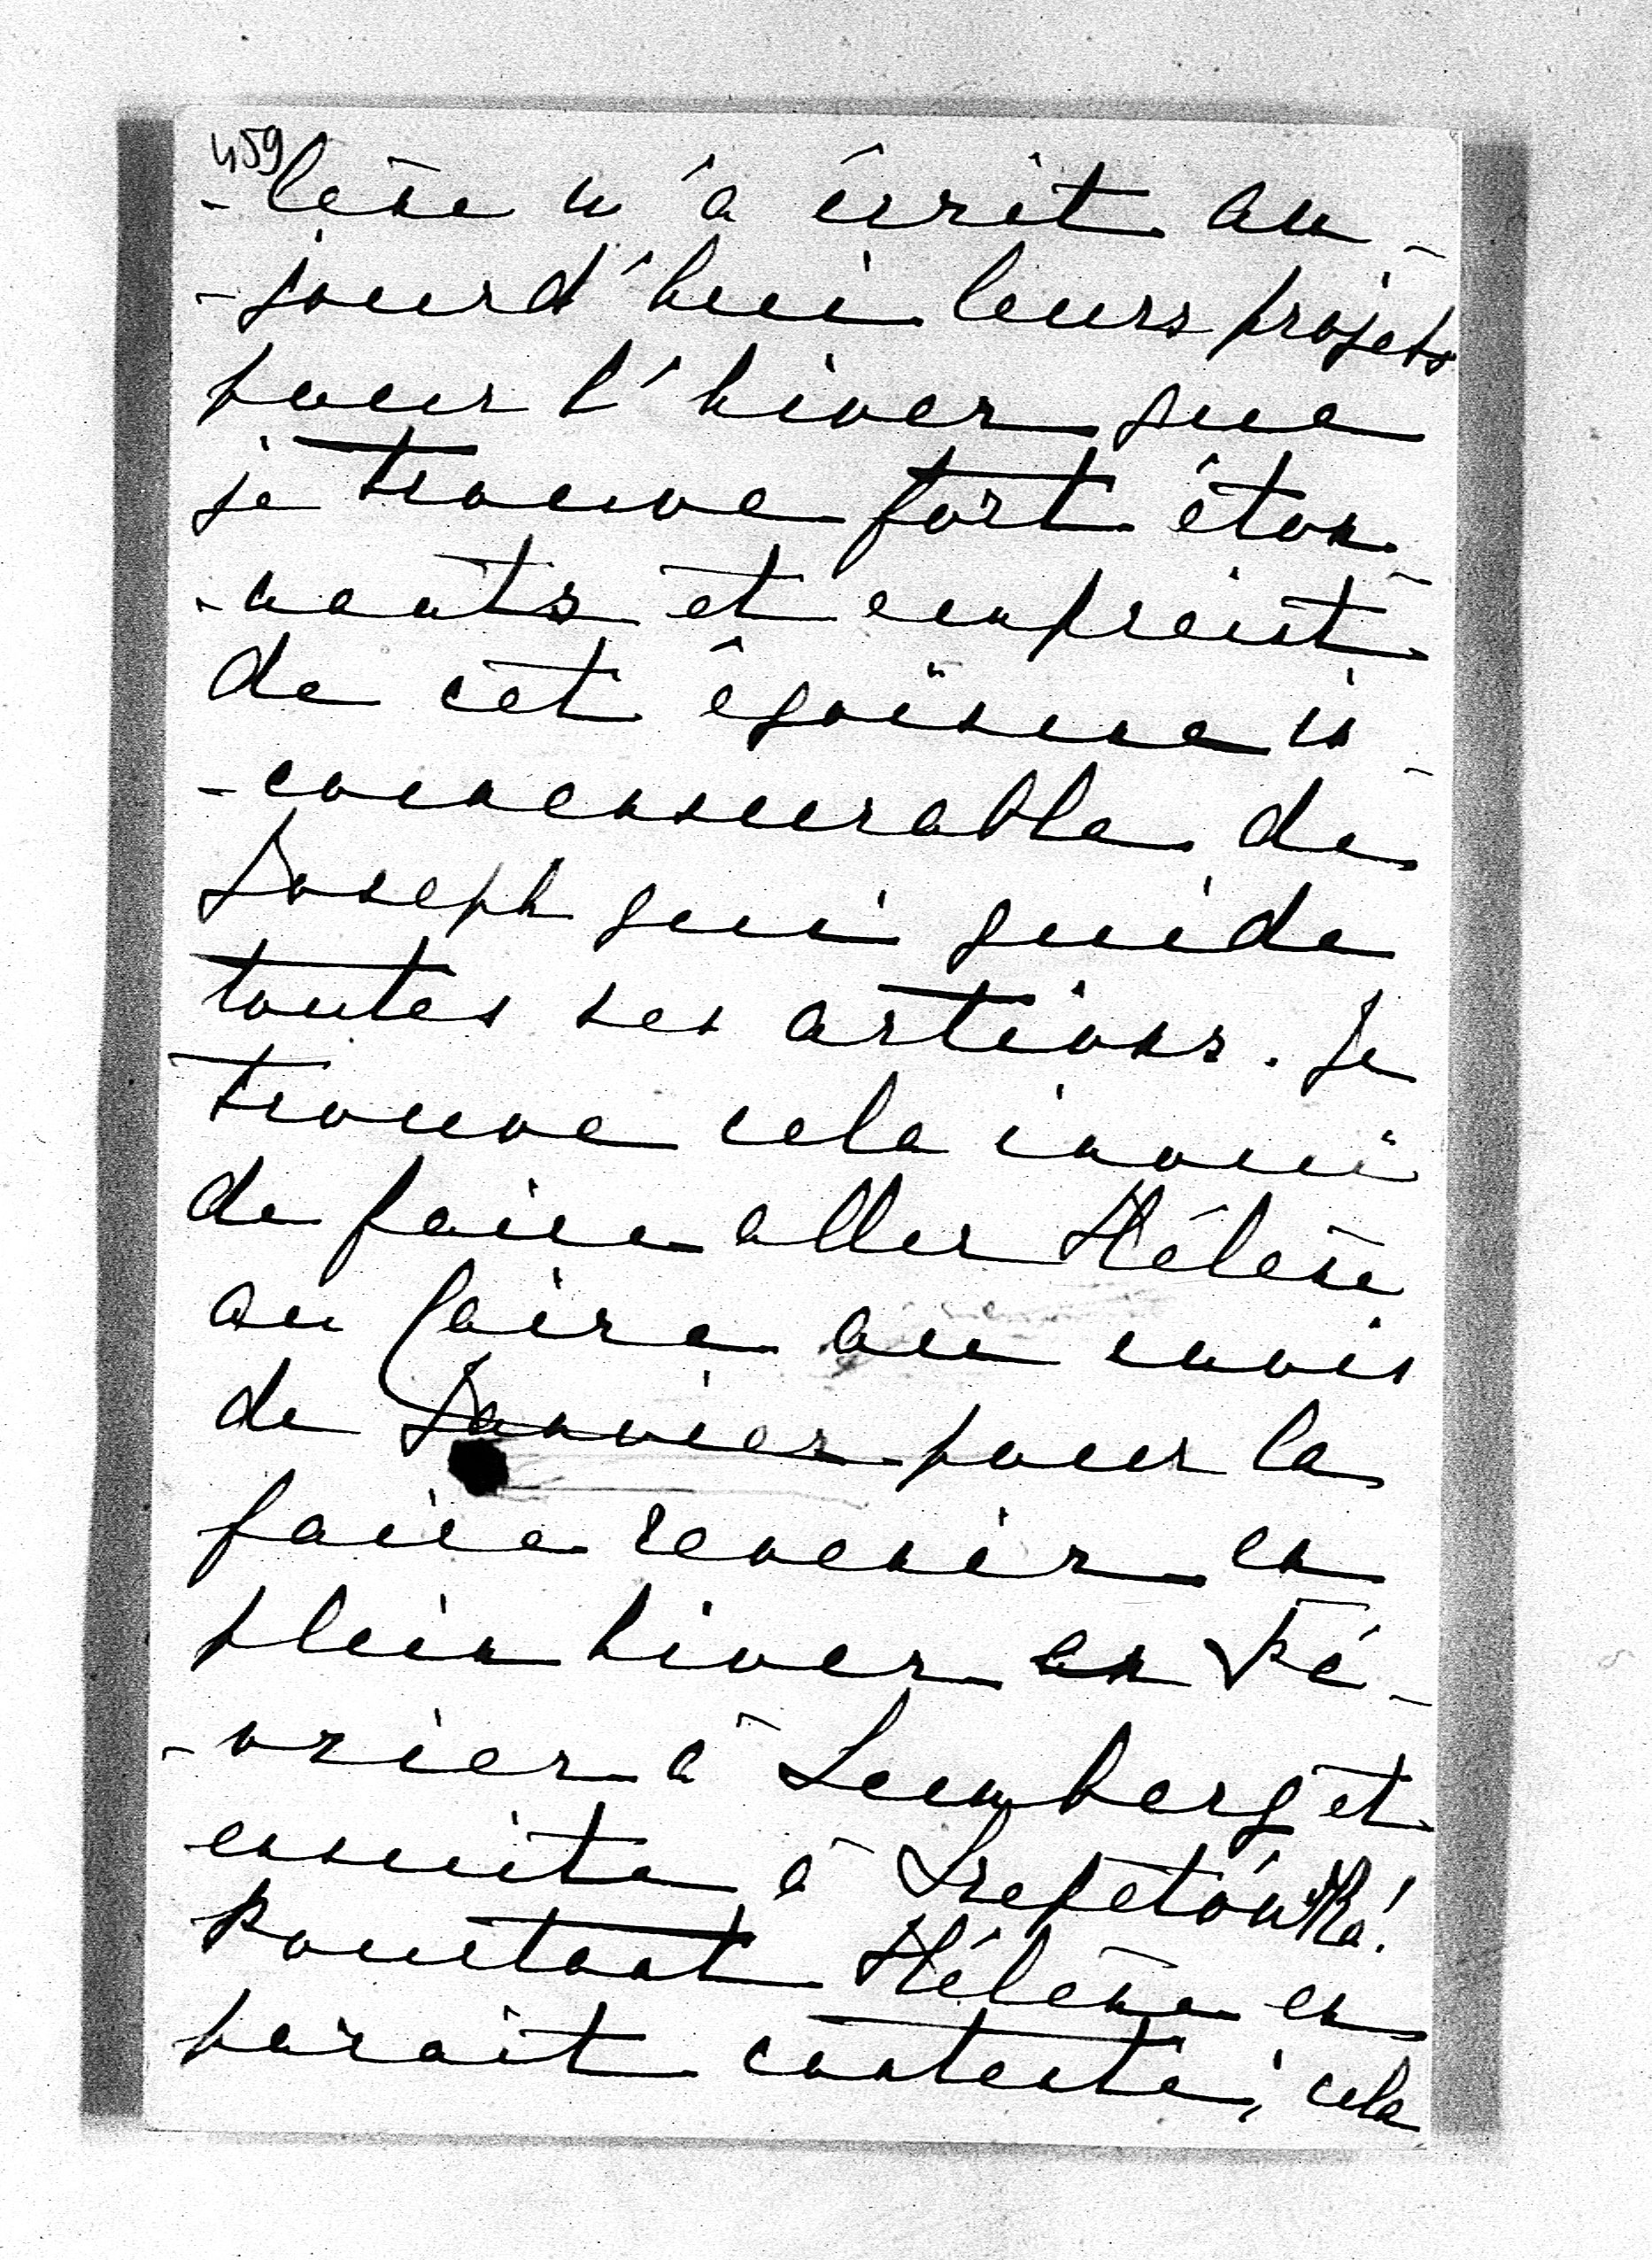 459
-lène m'a écrit au-
-jourd'hui leurs projets
pour l'hiver que
je trouve fort éton-
-nants et empreint
de cet égoïsme in-
-commensurable de
Joseph qui guide
toutes ses actions. Je
trouve cela inouï
de faire aller Hélène
au Caire au mois
de Janvier pour la
faire revenir en
plein hiver en Fé-
-vrier à Lemberg et
ensuite à
Pourtant Hélène en
parait contente, cela